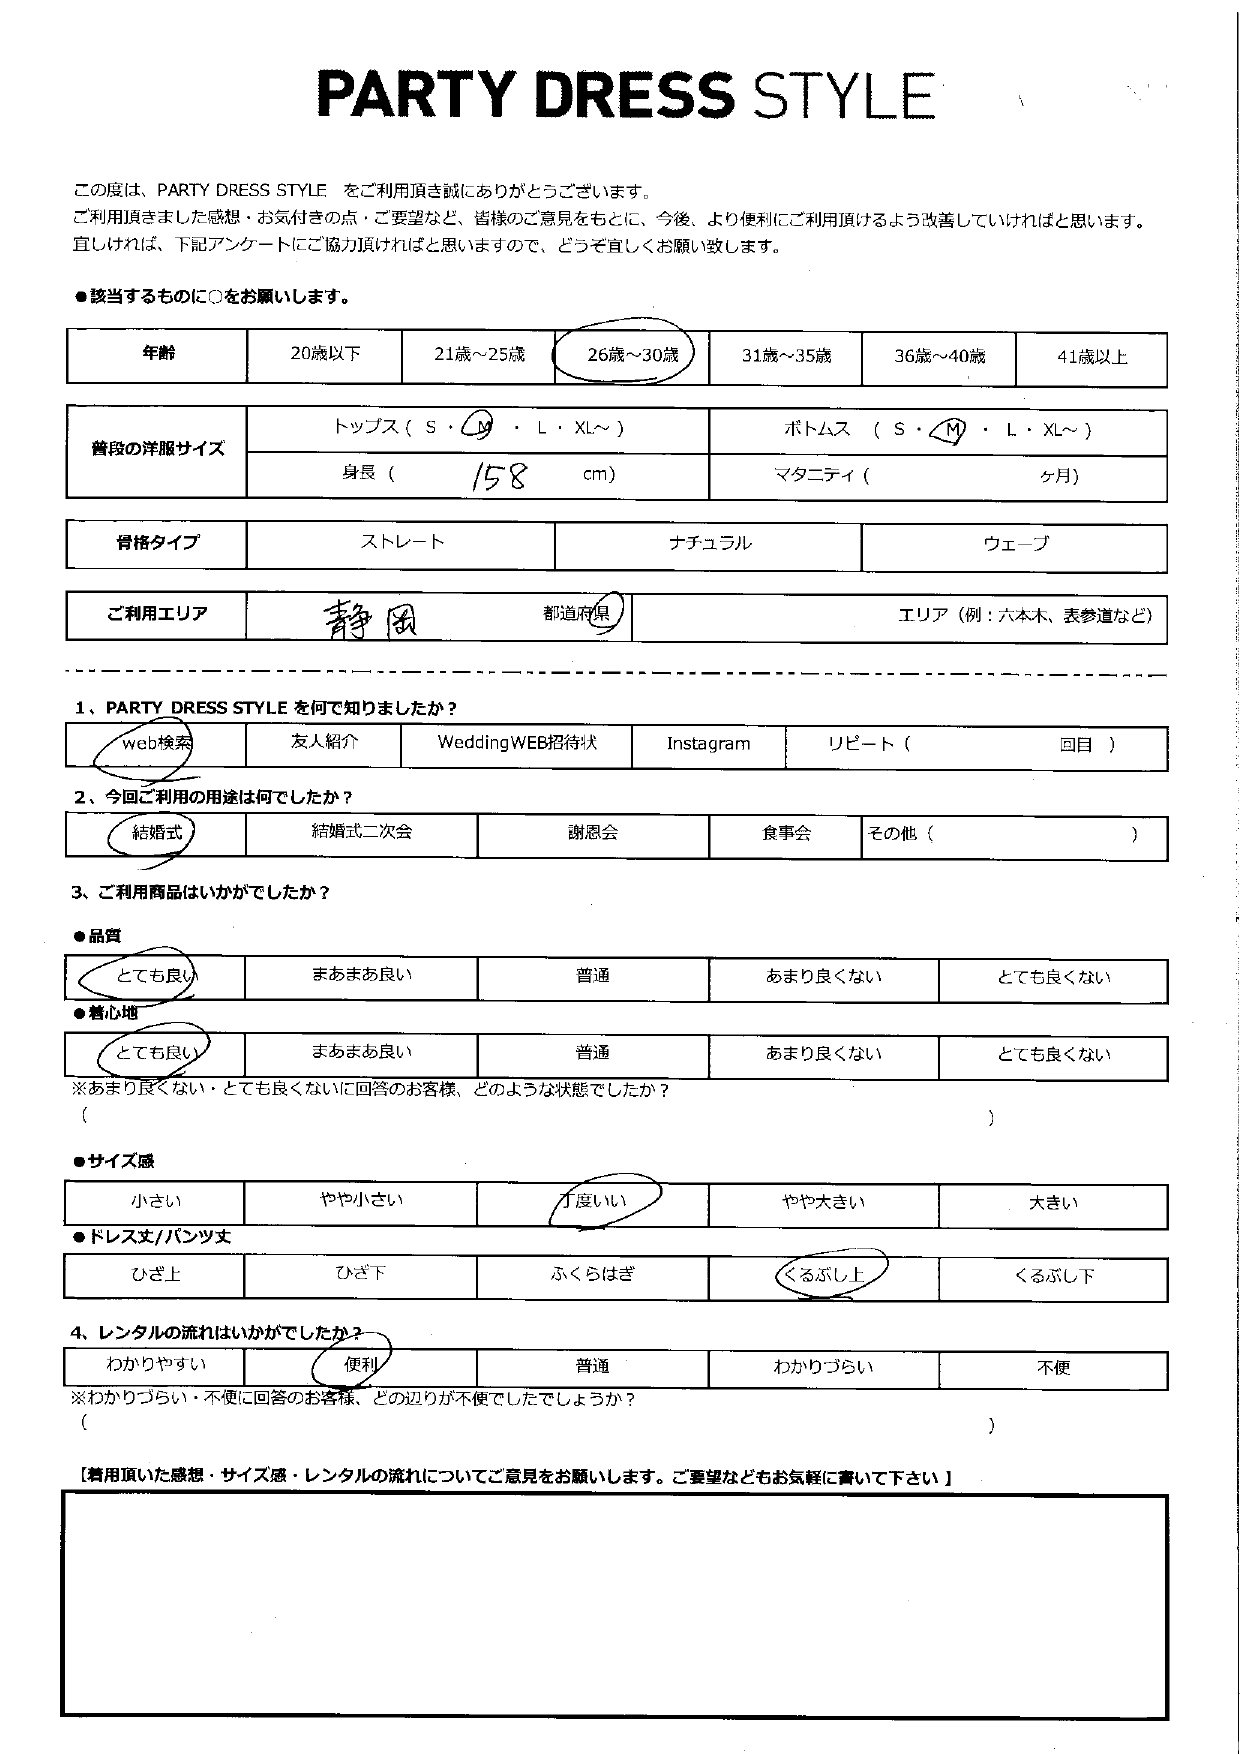 PARTY DRESS STYLE
この度は、PARTY DRESS STYLE をご利用頂き誠にありがとうございます。
ご利用頂きました感想・お気付きの点・ご要望など、皆様のご意見をもとに、今後、より便利にご利用頂けるよう改善していければと思います。
宜しければ、下記アンケートにご協力頂ければと思いますので、どうぞ宜しくお願い致します。
●該当するものに○をお願いします。
年齢 20歳以下 21歳～25歳 26歳～30歳 31歳～35歳 36歳～40歳 41歳以上
普段の洋服サイズ
トップス ( S ・ M ・ L ・ XL～ ) ボトムス ( S ・ M ・ L ・ XL～ )
身長 ( 158 cm) マタニティ ( ケ月)
骨格タイプ ストレート ナチュラル ウェーブ
ご利用エリア 静岡 都道府県 エリア（例：六本木、表参道など）
1、PARTY DRESS STYLE を何で知りましたか？
web検索 友人紹介 WeddingWEB招待状 Instagram リピート ( 回目 )
2、今回ご利用の用途は何でしたか？
結婚式 結婚式二次会 謝恩会 食事会 その他 ( )
3、ご利用商品はいかがでしたか？
●品質
とても良い まあまあ良い 普通 あまり良くない とても良くない
●着心地
とても良い まあまあ良い 普通 あまり良くない とても良くない
※あまり良くない・とても良くないに回答のお客様、どのような状態でしたか？
( )
●サイズ感
小さい やや小さい 丁度いい やや大きい 大きい
●ドレス丈/パンツ丈
ひざ上 ひざ下 ふくらはぎ くるぶし上 くるぶし下
4、レンタルの流れはいかがでしたか？
わかりやすい 便利 普通 わかりづらい 不便
※わかりづらい・不便に回答のお客様、どの辺りが不便でしたでしょうか？
( )
【着用頂いた感想・サイズ感・レンタルの流れについてご意見をお願いします。ご要望などもお気軽に書いて下さい】